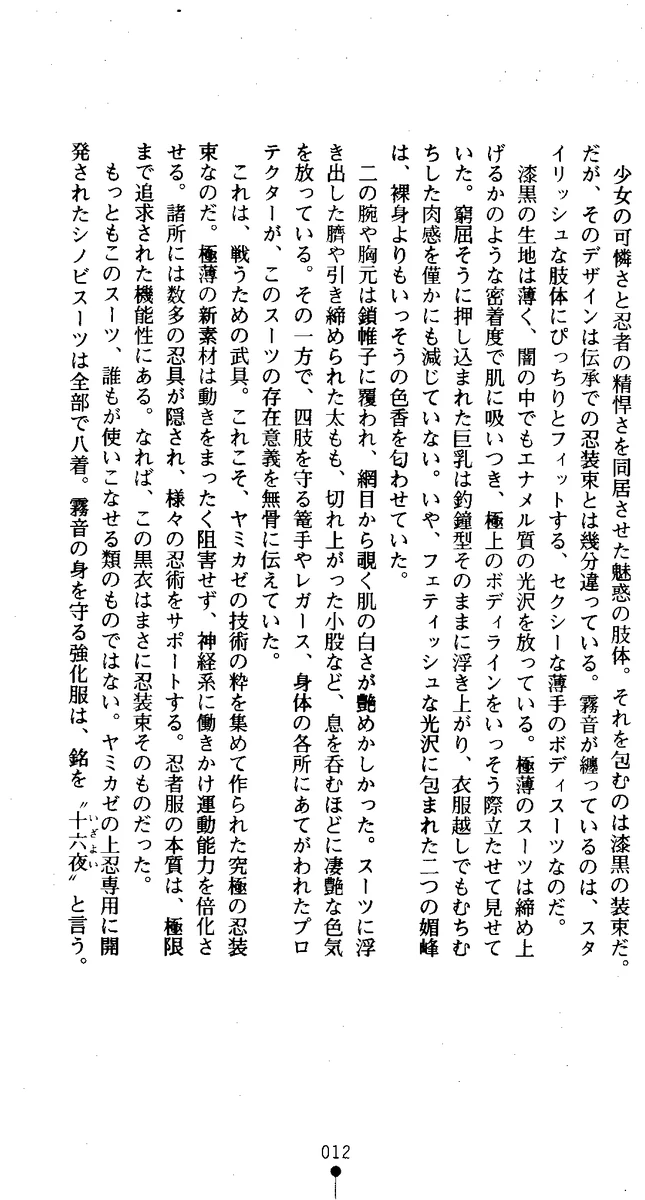 少女の可憐さと忍者の精悍さを同居させた魅惑の肢体。それを包むのは漆黒の装束だ。
だが、そのデザインは伝承での忍装束とは幾分違っている。霧音が纏っているのは、スタ
イリッシュな肢体にぴっちりとフィットする、セクシーな薄手のボディスーツなのだ。
漆黒の生地は薄く、闇の中でもエナメル質の光沢を放っている。極薄のスーツは締め上
げるかのような密着度で肌に吸いつき、極上のボディラインをいっそう際立たせて見せて
いた。窮屈そうに押し込まれた巨乳は釣鐘型そのままに浮き上がり、衣服越しでもむちむ
ちした肉感を僅かにも減じていない。いや、フェティッシュな光沢に包まれた二つの媚峰
は、裸身よりもいっそうの色香を匂わせていた。
二の腕や胸元は鎖帷子に覆われ、網目から覗く肌の白さが艶めかしかった。スーツに浮
き出した臍や引き締められた太もも、切れ上がった小股など、息を呑むほどに凄艶な色気
を放っている。その一方で、四肢を守る篭手やレガース、身体の各所にあてがわれたプロ
テクターが、このスーツの存在意義を無骨に伝えていた。
これは、戦うための武具。これこそ、ヤミカゼの技術の粋を集めて作られた究極の忍装
束なのだ。極薄の新素材は動きをまったく阻害せず、神経系に働きかけ運動能力を倍化さ
せる。諸所には数多の忍具が隠され、様々の忍術をサポートする。忍者服の本質は、極限
まで追求された機能性にある。なれば、この黒衣はまさに忍装束そのものだった。
もっともこのスーツ、誰もが使いこなせる類のものではない。ヤミカゼの上忍専用に開
発されたシノビスーツは全部で八着。霧音の身を守る強化服は、銘を〝十六夜〟と言う。
いざよい
012